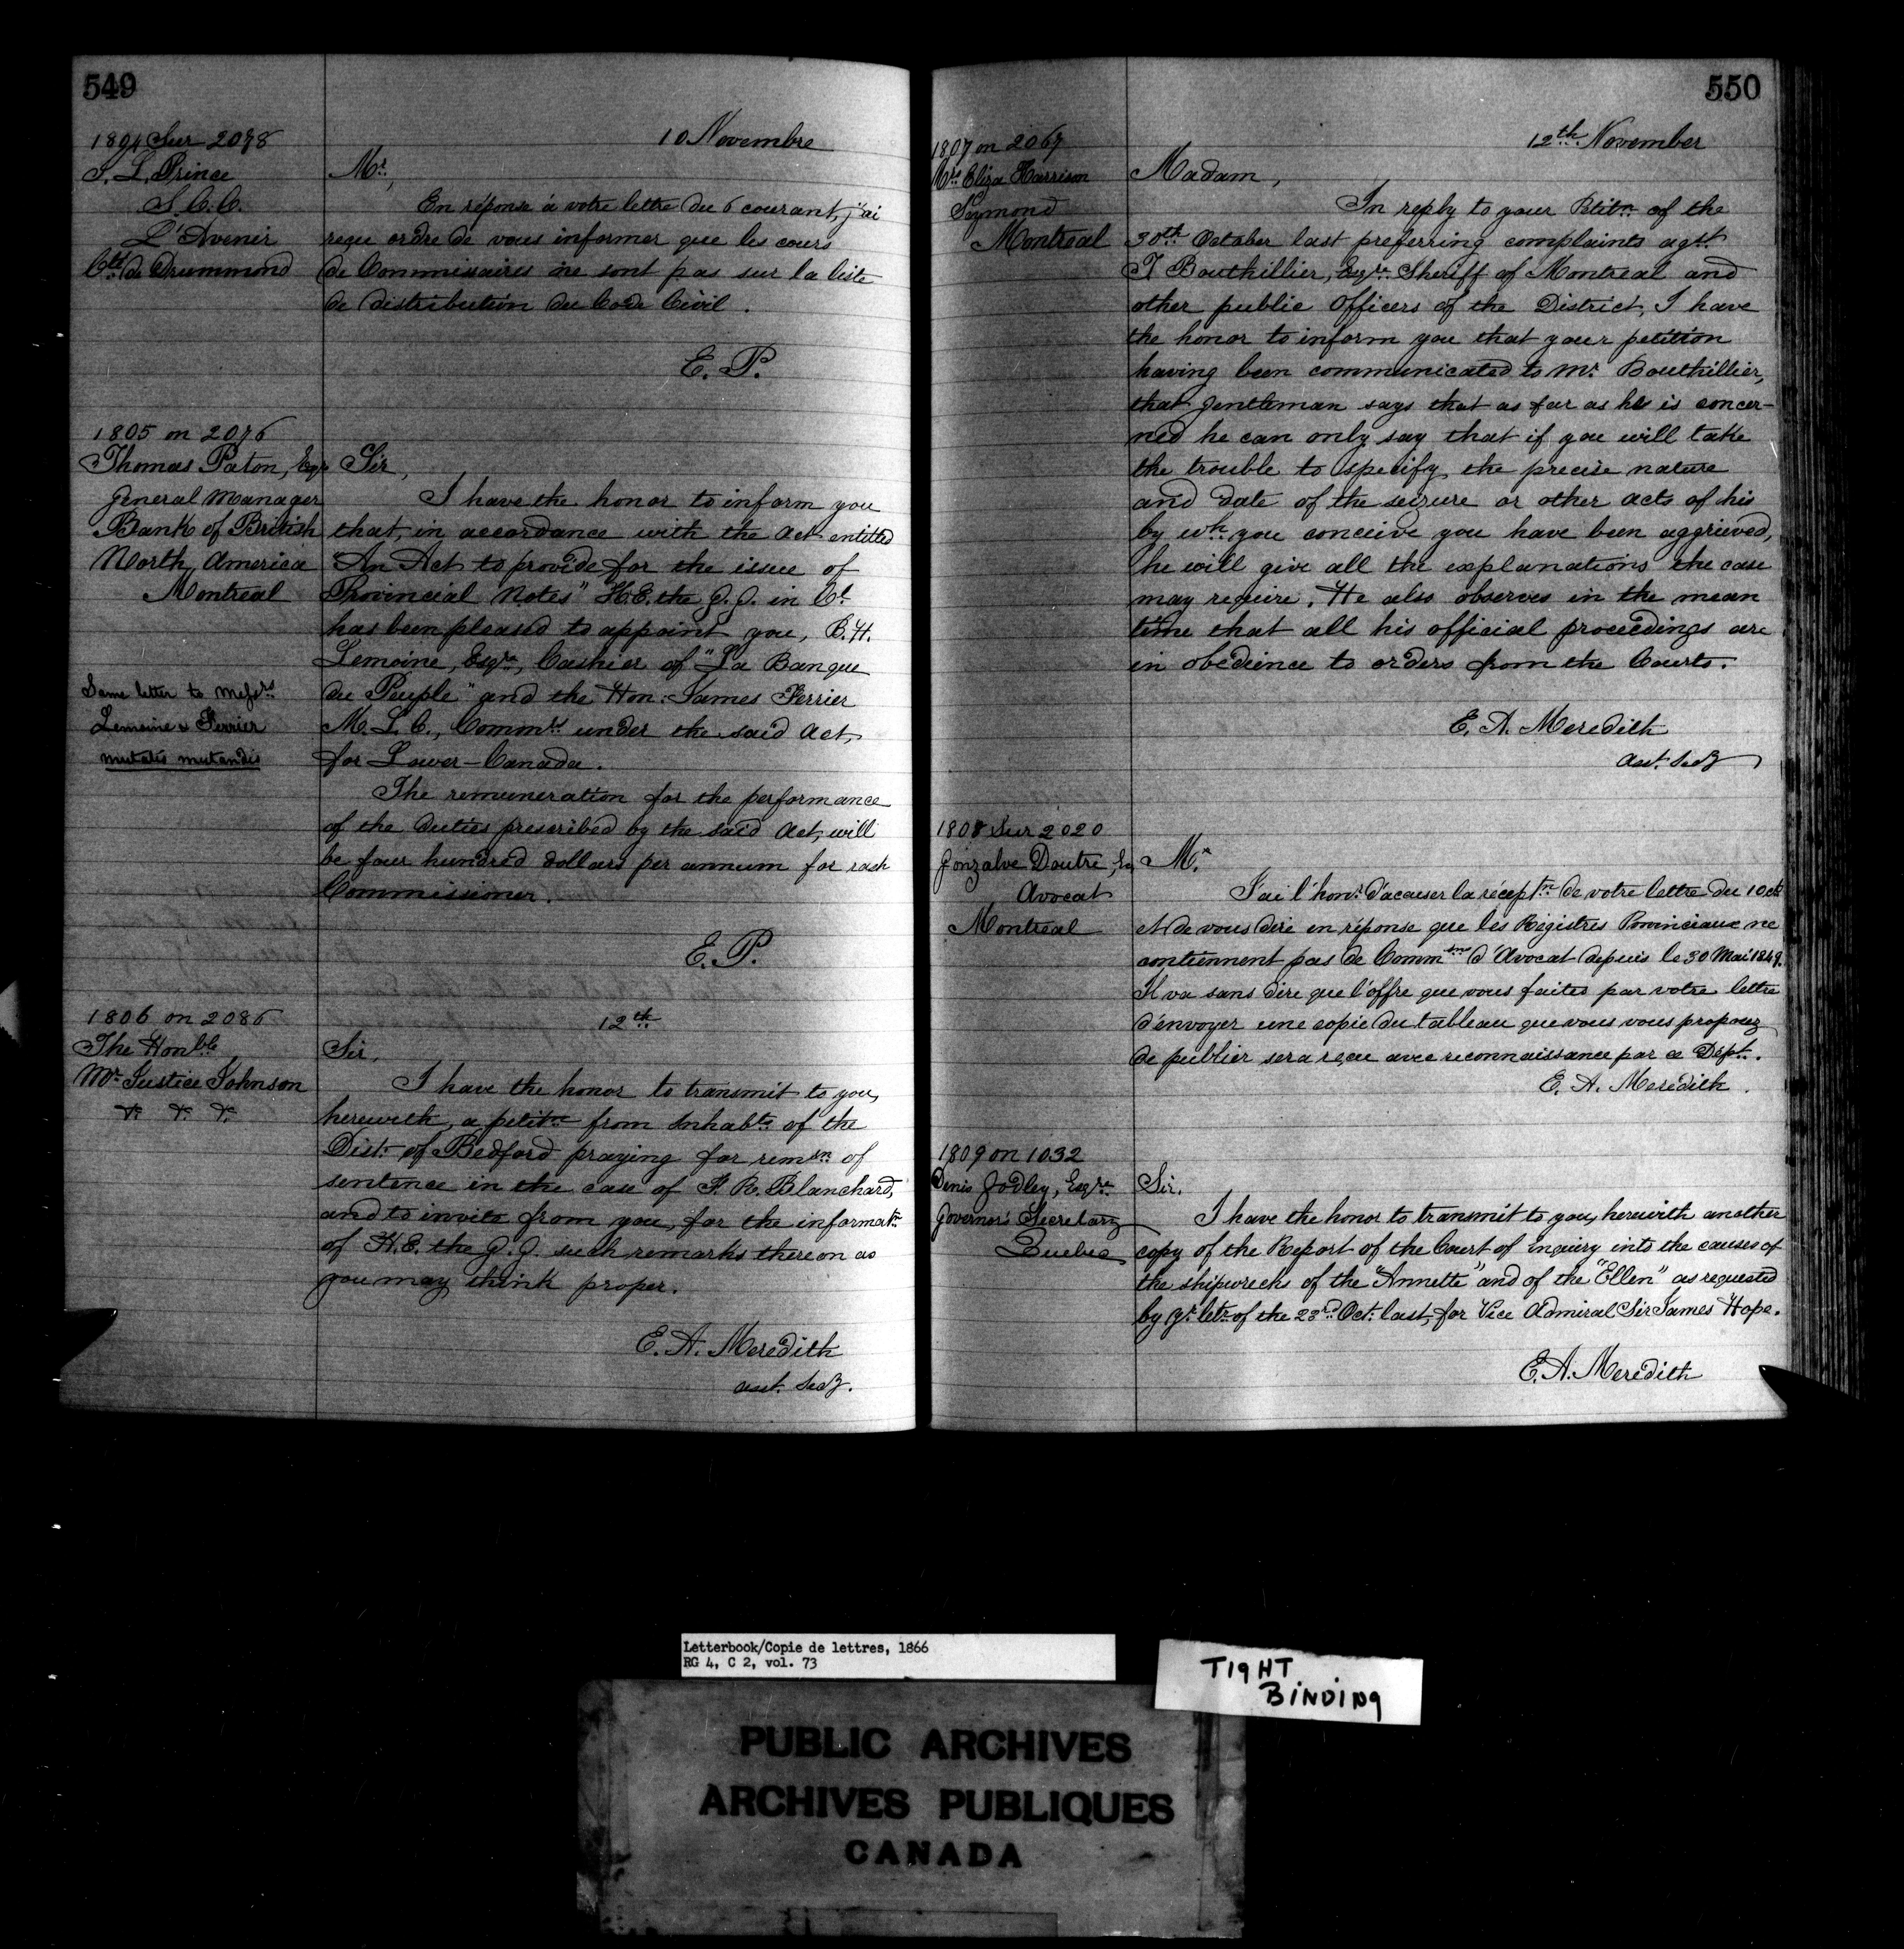 549
1804 Sur 2078
J. L. Prince
S. C. C.
L'Avenir
Cté de Drummond
10 Novembre
Mr,
En réponse à votre lettre du 6 courant, j'ai
reçu ordre de vous informer que les cours
de Commissaires ne sont pas sur la liste
de distribution du Code Civil.
E. P.
1805 on 2076
Thomas Paton, Esqr
General Manager
Bank of British
North America
Montreal
Same letter to Messrs
Lemoine & Ferrier
mutatis mutandis
Sir,
I have the honor to inform you
that, in accordance with the Act entitled
"An Act to provide for the issue of
Provincial Notes" H.E. the G.G. in Cl
has been pleased to appoint you, B. H.
Lemoine, Esqre, Cashier of "La Banque
du Peuple" and the Hon: James Ferrier
M. L. C., Commrs under the said Act,
for Lower-Canada.
The remuneration for the performance
of the duties prescribed by the said Act, will
be four hundred dollars per annum for each
Commissioner.
E. P.
1806 on 2086
The Honble
Mr Justice Johnson
&c &c &c
12th
Sir,
I have the honor to transmit to you,
herewith, a petitn from Inhabts of the
Dist. of Bedford praying for remsn of
sentence in the case of F. R. Blanchard,
and to invite from you, for the informatn
of H.E. the G.G. such remarks thereon as
you may think proper.
E. A. Meredith
asst. Secy.
550
1807 on 2067
Mrs Eliza Harrison
Symond
Montreal
12th November
Madam,
In reply to your Petitn of the
30th October last preferring complaints agst
T Bouthillier, Esqre Sheriff of Montreal and
other public Officers of the District, I have
the honor to inform you that your petition
having been communicated to Mr Bouthillier,
that gentleman says that as far as he is concer-
ned he can only say that if you will take
the trouble to specify the precise nature
and date of the seizure or other acts of his
by wh. you conceive you have been aggrieved,
he will give all the explanations the case
may require. He also observes in the mean
time that all his official proceedings are
in obedience to orders from the Courts.
E. A. Meredith
asst. Secy
1808 Sur 2020
Gonzalve Doutre, Es
Avocat
Montreal
Mr
J'ai l'honr d'acauser la réceptn de votre lettre du 10 ct
et de vous dire en réponse que les Régistres Provinciaux ne
contiennent pas de Commns d'Avocat depuis le 30 Mai 1849.
Il va sans dire que l'offre que vous faites par votre lettre
d'envoyer une copie du tableau que vous vous proposez
de publier sera reçu avec reconnaissance par ce Dépt.
E. A. Meredith.
1809 on 1032
Denis Godley, Esqre
Governor's Secretary
Quebec
Sir,
I have the honor to transmit to you, herewith another
copy of the Report of the Court of inquiry into the causes of
the shipwrecks of the "Annette" and of the "Ellen" as requested
by yr letr of the 23rd Oct. last, for Vice Admiral Sir James Hope.
E. A. Meredith
Letterbook/Copie de lettres, 1866
RG 4, C 2, vol. 73
TIGHT
BINDING
PUBLIC ARCHIVES
ARCHIVES PUBLIQUES
CANADA